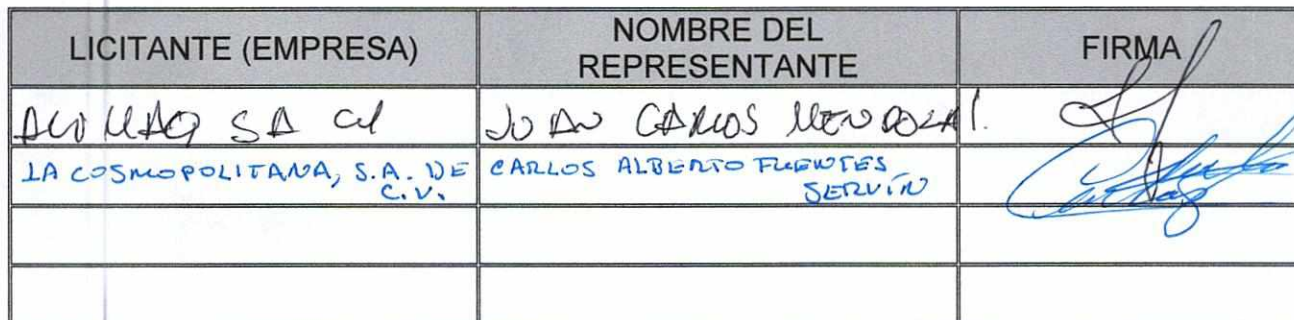 LICITANTE (EMPRESA)
NOMBRE DEL
REPRESENTANTE
FIRMA
SA
JUAN CARLOS MENDOZA
LA COSMOPOLITANA, S.A. DE
C.V.
CARLOS ALBERTO FUENTES
SERVÍN